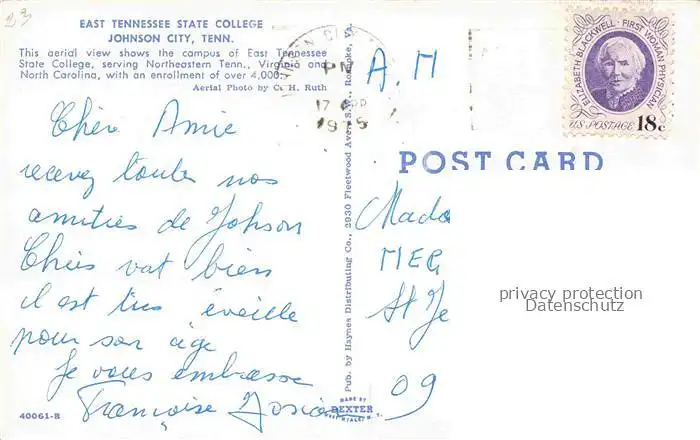 23
EAST TENNESSEE STATE COLLEGE
JOHNSON CITY, TENN.
This aerial view shows the campus of East Tennessee
State College, serving Northeastern Tenn., Virginia and
North Carolina, with an enrollment of over 4,000.
Aerial Photo by C. H. Ruth
PM
17 APR
1975
ELIZABETH BLACKWELL · FIRST WOMAN PHYSICIAN
U.S. POSTAGE 18c
POST CARD
Chère Amie
recevez toutes nos
amitiés de Johson
Chris vat bien
il est très éveillé
pour son âge
Je vous embrasse
Françoise Josian
40061-B
Pub. by Haynes Distributing Co., 2930 Fleetwood Ave., S.W., Roanoke, Va.
MADE BY
DEXTER
WEST NYACK, N. Y.
A.M
Mada
MER
St Je
09
privacy protection
Datenschutz